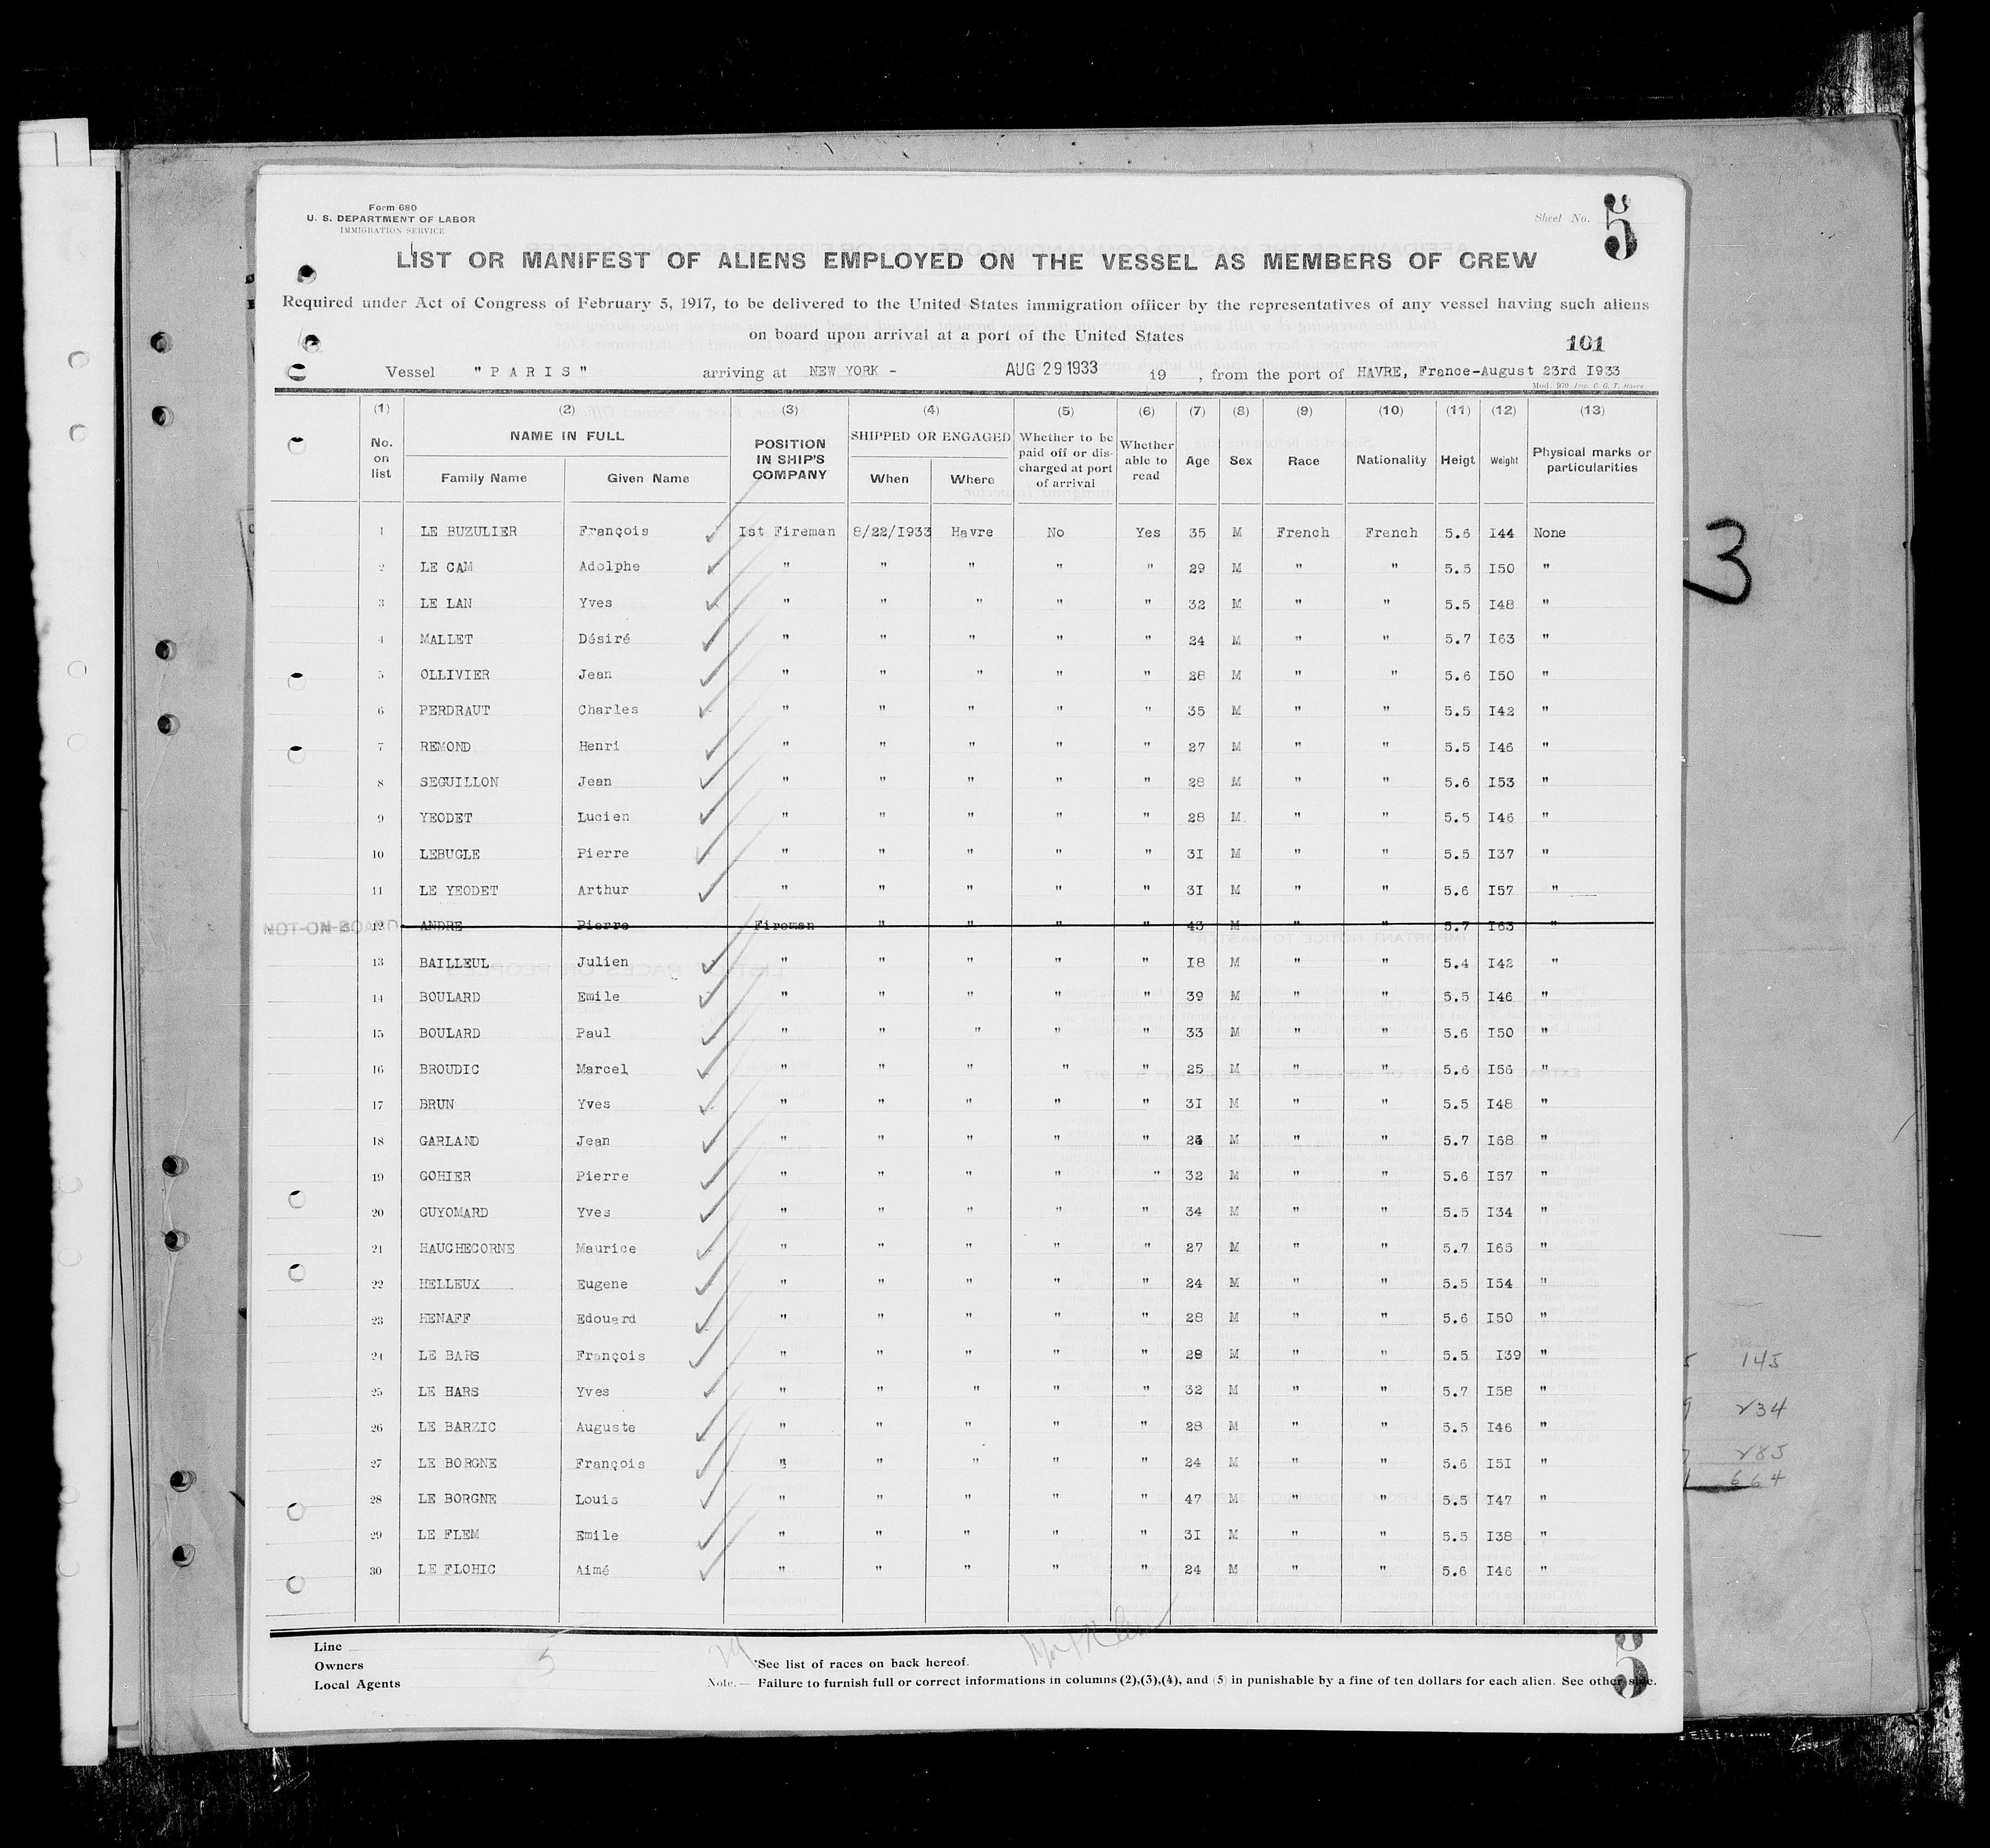 Form 680
U. S. DEPARTMENT OF LABOR
IMMIGRATION SERVICE
Sheet No. 5
LIST OR MANIFEST OF ALIENS EMPLOYED ON THE VESSEL AS MEMBERS OF CREW
Required under Act of Congress of February 5, 1917, to be delivered to the United States immigration officer by the representatives of any vessel having such aliens
on board upon arrival at a port of the United States
101
Vessel "PARIS" arriving at NEW YORK - AUG 29 1933 19 , from the port of HAVRE, France-August 23rd I933
Mod. 970 Imp. C. G. T. Havre
(1) (2) (3) (4) (5) (6) (7) (8) (9) (10) (11) (12) (13)
No. on list NAME IN FULL Family Name Given Name POSITION IN SHIP'S COMPANY SHIPPED OR ENGAGED When Where Whether to be paid off or discharged at port of arrival Whether able to read Age Sex Race Nationality Heigt Weight Physical marks or particularities
1 LE BUZULIER François Ist Fireman 8/22/I933 Havre No Yes 35 M French French 5.6 I44 None
2 LE CAM Adolphe " " " " " 29 M " " 5.5 I50 "
3 LE LAN Yves " " " " " 32 M " " 5.5 I48 "
4 MALLET Désiré " " " " " 24 M " " 5.7 I63 "
5 OLLIVIER Jean " " " " " 28 M " " 5.6 I50 "
6 PERDRAUT Charles " " " " " 35 M " " 5.5 I42 "
7 REMOND Henri " " " " " 27 M " " 5.5 I46 "
8 SEGUILLON Jean " " " " " 28 M " " 5.6 I53 "
9 YEODET Lucien " " " " " 28 M " " 5.5 I46 "
10 LEBUGLE Pierre " " " " " 3I M " " 5.5 I37 "
11 LE YEODET Arthur " " " " " 3I M " " 5.6 I57 "
12 ANDRE Pierre Fireman " " " " 43 M " " 5.7 I63 "
13 BAILLEUL Julien " " " " " I8 M " " 5.4 I42 "
14 BOULARD Emile " " " " " 39 M " " 5.5 I46 "
15 BOULARD Paul " " " " " 33 M " " 5.6 I50 "
16 BROUDIC Marcel " " " " " 25 M " " 5.6 I56 "
17 BRUN Yves " " " " " 3I M " " 5.5 I48 "
18 GARLAND Jean " " " " " M " " 5.7 I68 "
19 GOHIER Pierre " " " " " 32 M " " 5.6 I57 "
20 GUYOMARD Yves " " " " " 34 M " " 5.5 I34 "
21 HAUCHECORNE Maurice " " " " " 27 M " " 5.7 I65 "
22 HELLEUX Eugene " " " " " 24 M " " 5.5 I54 "
23 HENAFF Edouard " " " " " 28 M " " 5.6 I50 "
24 LE BARS François " " " " " 28 M " " 5.5 I39 "
25 LE HARS Yves " " " " " 32 M " " 5.7 I58 "
26 LE BARZIC Auguste " " " " " 28 M " " 5.5 I46 "
27 LE BORGNE François " " " " " 24 M " " 5.6 I5I "
28 LE BORGNE Louis " " " " " 47 M " " 5.5 I47 "
29 LE FLEM Emile " " " " " 3I M " " 5.5 I38 "
30 LE FLOHIC Aimé " " " " " 24 M " " 5.6 I46 "
Line
Owners
Local Agents
5
29
*See list of races on back hereof.
Note. — Failure to furnish full or correct informations in columns (2),(3),(4), and (5) in punishable by a fine of ten dollars for each alien. See other side.
5
3
145
234
285
664